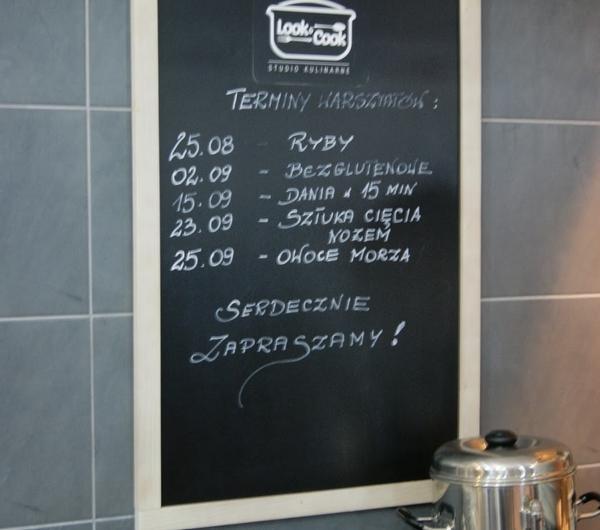 Look & Cook
STUDIO KULINARNE
TERMINY WARSZTATÓW :
25.08 - RYBY
02.09 - BEZGLUTENOWE
15.09 - DANIA w 15 MIN
23.09 - SZTUKA CIĘCIA
NOŻEM
25.09 - OWOCE MORZA
SERDECZNIE
ZAPRASZAMY!